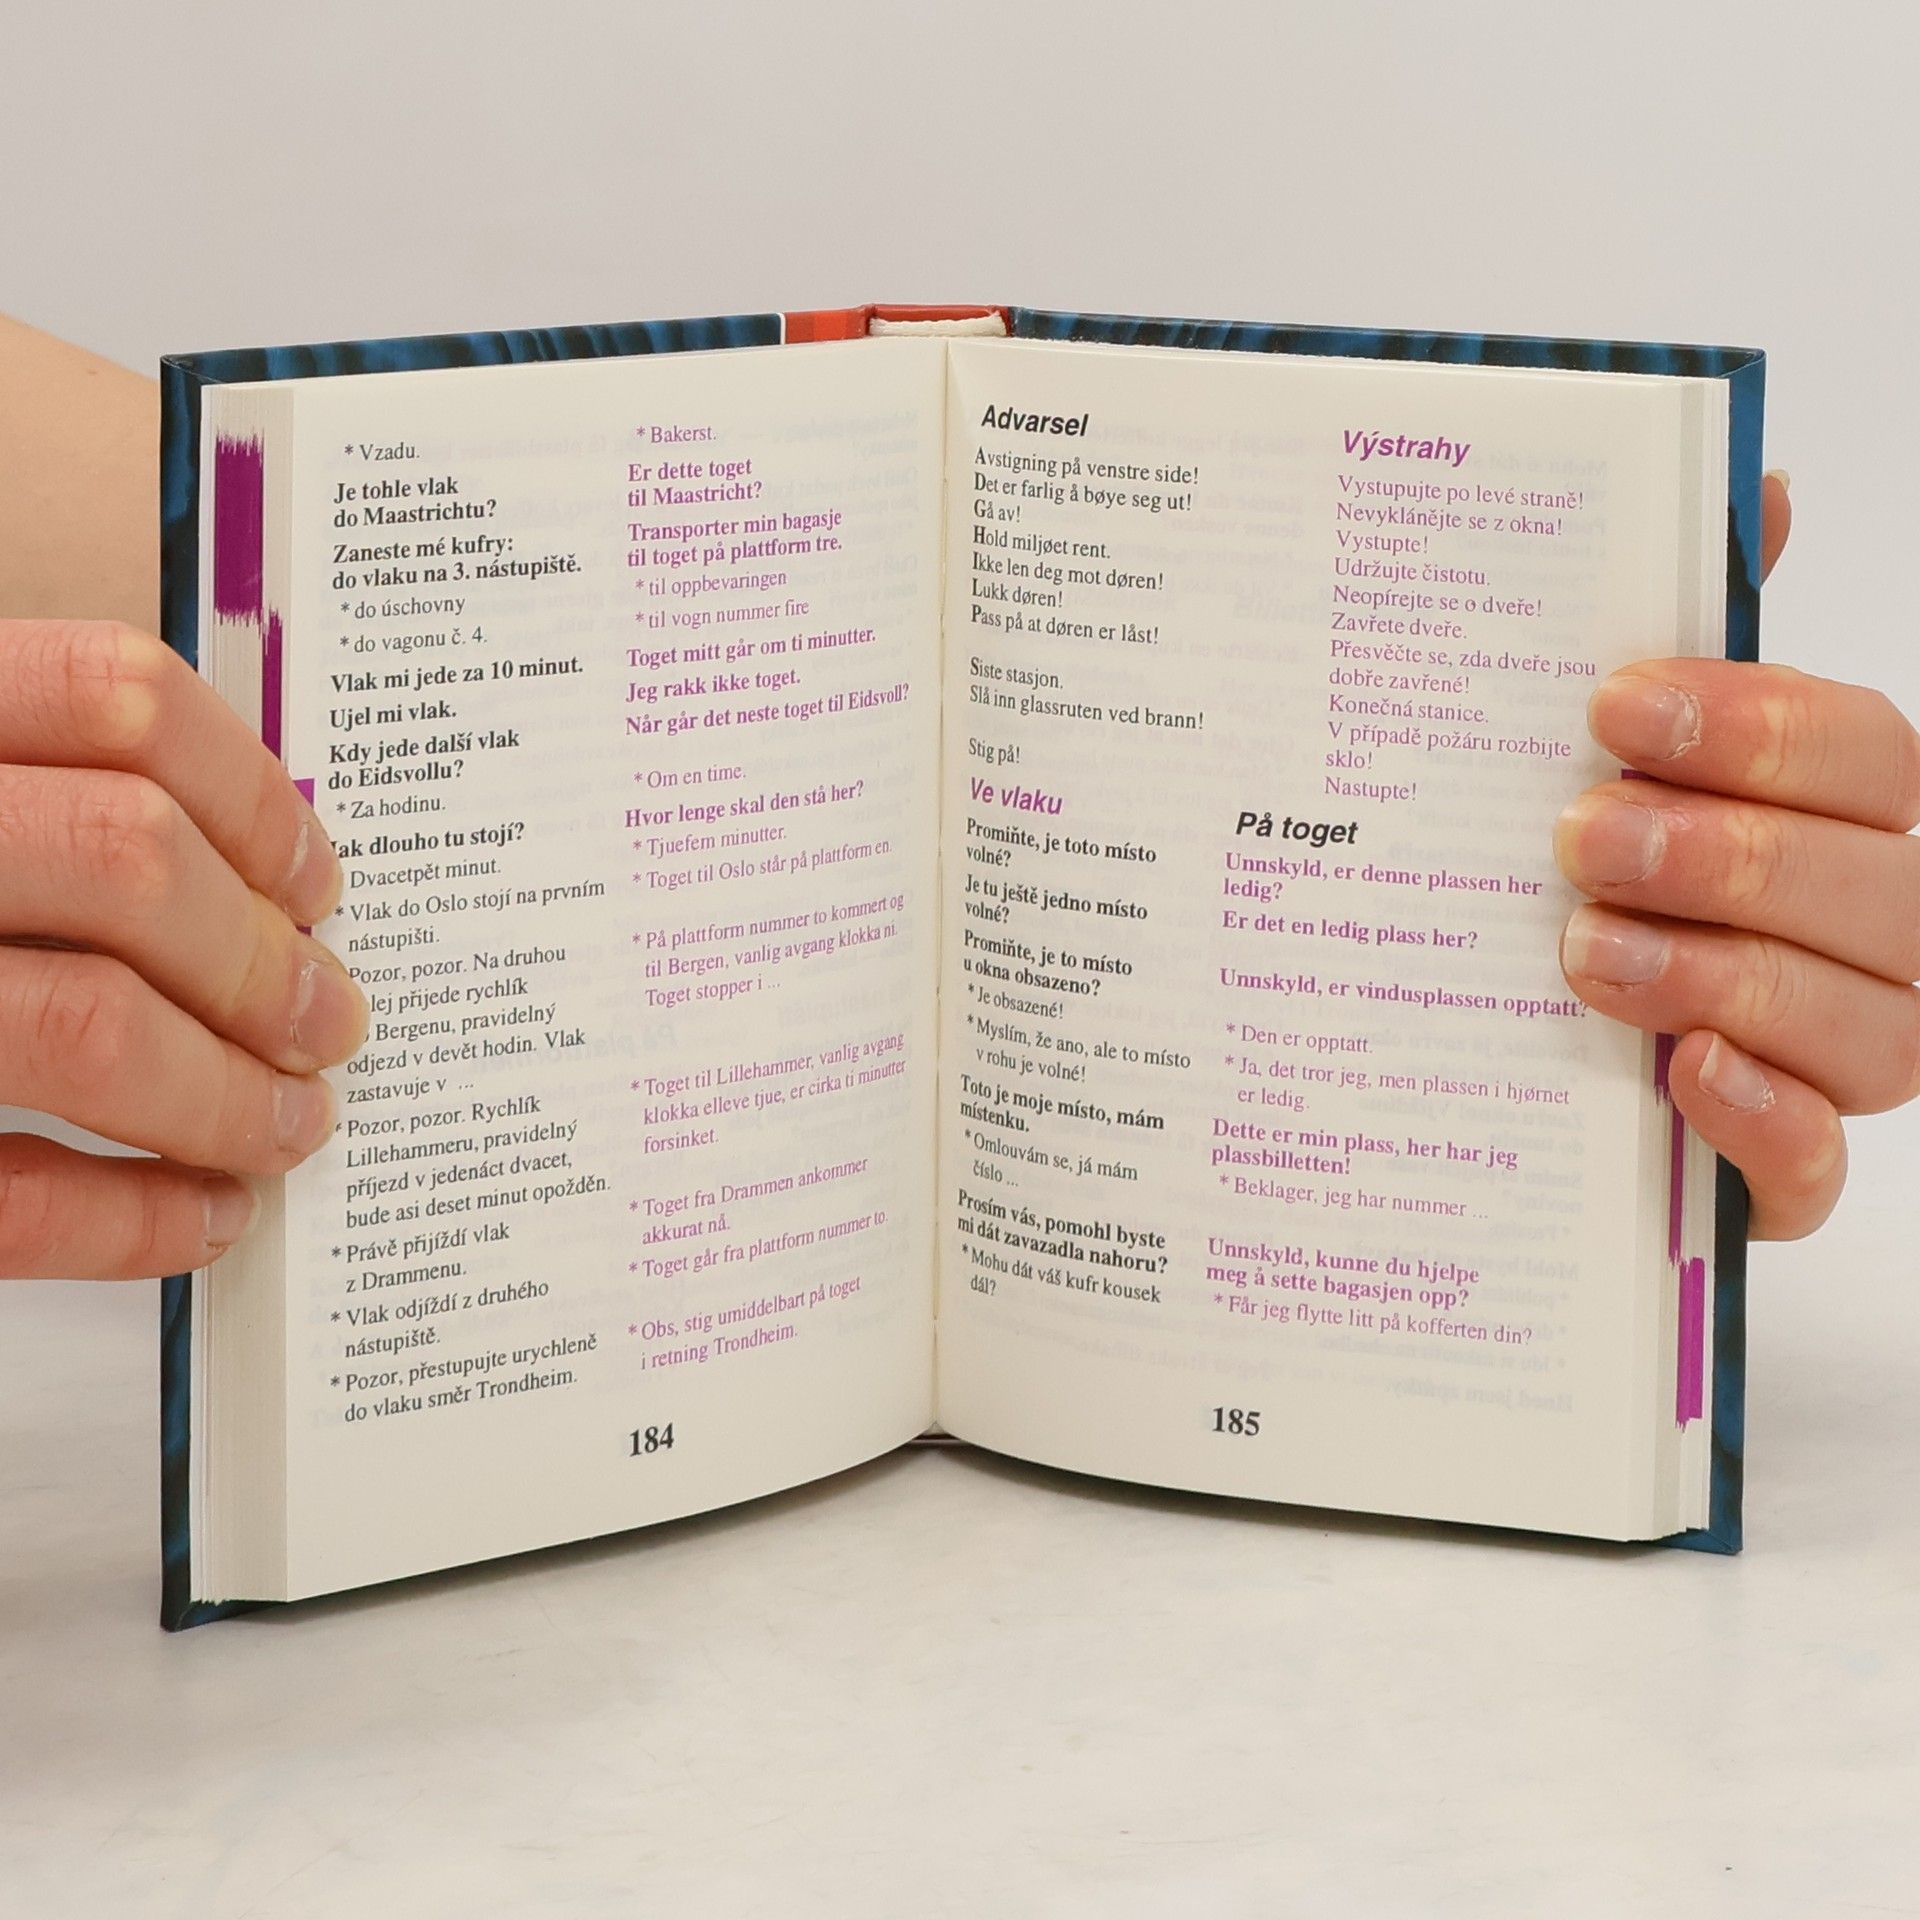 * Vzadu.
Je tohle vlak
do Maastrichtu?
Zaneste mé kufry:
do vlaku na 3. nástupiště.
* do úschovny
* do vagonu č. 4.
Vlak mi jede za 10 minut.
Ujel mi vlak.
Kdy jede další vlak
do Eidsvollu?
* Za hodinu.
ak dlouho tu stojí?
Dvacetpět minut.
* Vlak do Oslo stojí na prvním
nástupišti.
Pozor, pozor. Na druhou
lej přijede rychlík
Bergenu, pravidelný
odjezd v devět hodin. Vlak
zastavuje v ...
* Pozor, pozor. Rychlík
Lillehammeru, pravidelný
příjezd v jedenáct dvacet,
bude asi deset minut opožděn.
* Právě přijíždí vlak
z Drammenu.
* Vlak odjíždí z druhého
nástupiště.
* Pozor, přestupujte urychleně
do vlaku směr Trondheim.
* Bakerst.
Er dette toget
til Maastricht?
Transporter min bagasje
til toget på plattform tre.
* til oppbevaringen
* til vogn nummer fire
Toget mitt går om ti minutter.
Jeg rakk ikke toget.
Når går det neste toget til Eidsvoll?
* Om en time.
Hvor lenge skal den stå her?
* Tjuefem minutter.
* Toget til Oslo står på plattform en.
* På plattform nummer to kommert og
til Bergen, vanlig avgang klokka ni.
Toget stopper i ...
* Toget til Lillehammer, vanlig avgang
klokka elleve tjue, er cirka ti minutter
forsinket.
* Toget fra Drammen ankommer
akkurat nå.
* Toget går fra plattform nummer to.
* Obs, stig umiddelbart på toget
i retning Trondheim.
184
Advarsel
Avstigning på venstre side!
Det er farlig å bøye seg ut!
Gå av!
Hold miljøet rent.
Ikke len deg mot døren!
Lukk døren!
Pass på at døren er låst!
Siste stasjon.
Slå inn glassruten ved brann!
Stig på!
Výstrahy
Vystupujte po levé straně!
Nevyklánějte se z okna!
Vystupte!
Udržujte čistotu.
Neopírejte se o dveře!
Zavřete dveře.
Přesvěčte se, zda dveře jsou
dobře zavřené!
Konečná stanice.
V případě požáru rozbijte
sklo!
Nastupte!
Ve vlaku
Promiňte, je toto místo
volné?
Je tu ještě jedno místo
volné?
Promiňte, je to místo
u okna obsazeno?
* Je obsazené!
* Myslím, že ano, ale to místo
v rohu je volné!
Toto je moje místo, mám
místenku.
* Omlouvám se, já mám
číslo ...
Prosím vás, pomohl byste
mi dát zavazadla nahoru?
* Mohu dát váš kufr kousek
dál?
På toget
Unnskyld, er denne plassen her
ledig?
Er det en ledig plass her?
Unnskyld, er vindusplassen opptatt?
* Den er opptatt.
* Ja, det tror jeg, men plassen i hjørnet
er ledig.
Dette er min plass, her har jeg
plassbilletten!
* Beklager, jeg har nummer ...
Unnskyld, kunne du hjelpe
meg å sette bagasjen opp?
* Får jeg flytte litt på kofferten din?
185